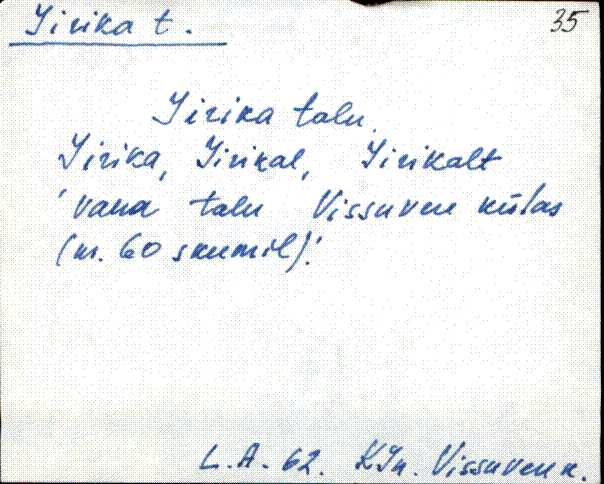 Jirika t.
35
Jirika talu.
Jirika, Jirikal, Jirikalt
'vana talu Vissuveu külas
(nr. 60 skeemil)'.
L.A. 62. KJn. Vissuveu k.